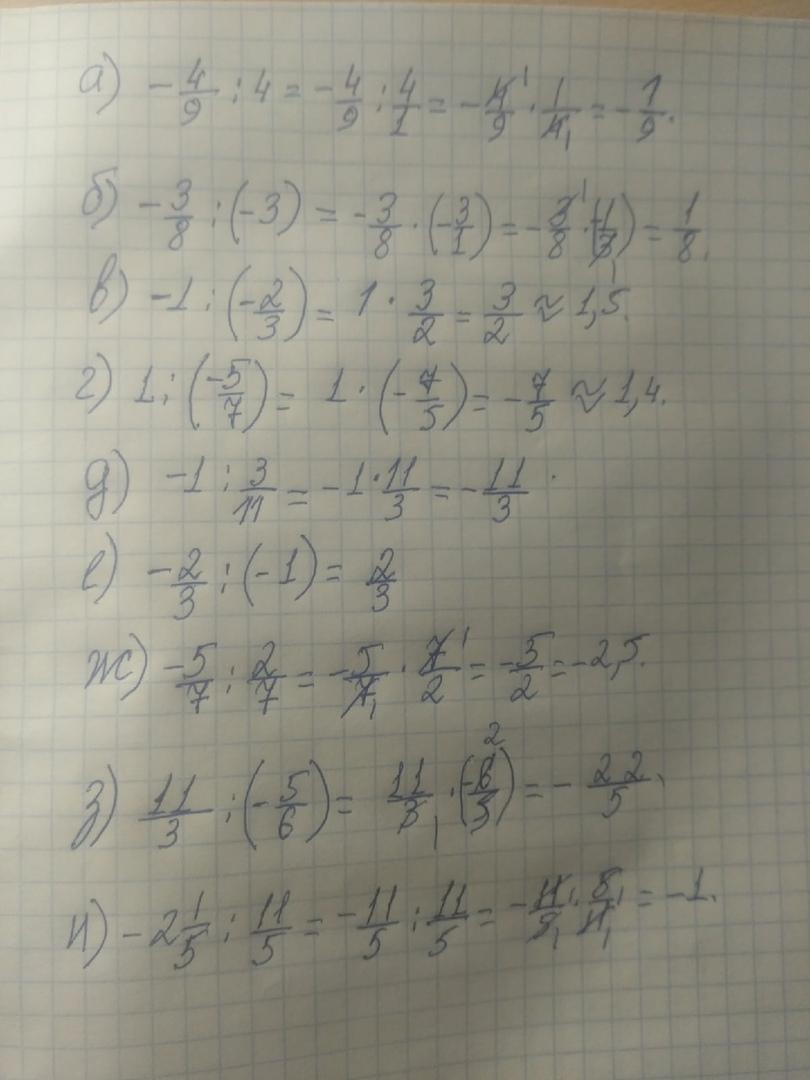 а) -4/9 : 4 = -4/9 : 4/1 = -4/9 · 1/4 = -1/9.
б) -3/8 : (-3) = -3/8 · (-3/1) = -3/8 · (-1/3) = 1/8.
в) -1 : (-2/3) = 1 · 3/2 = 3/2 ≈ 1,5.
г) 1 : (-5/7) = 1 · (-7/5) = -7/5 ≈ 1,4.
д) -1 : 3/11 = -1 · 11/3 = -11/3.
е) -2/3 : (-1) = 2/3
ж) -5/7 : 2/7 = -5/7 · 7/2 = -5/2 = -2,5.
з) 11/3 : (-5/6) = 11/3 · (-6/5) = -22/5.
и) -2 1/5 : 11/5 = -11/5 : 11/5 = -11/5 · 5/11 = -1.